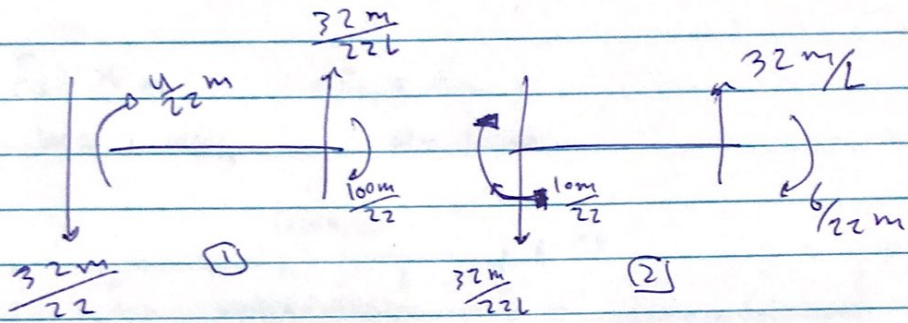 32m/22L
4/22 m
100m/22
32m/22
①
32 m/L
10m/22
6/22 m
32m/22L
②